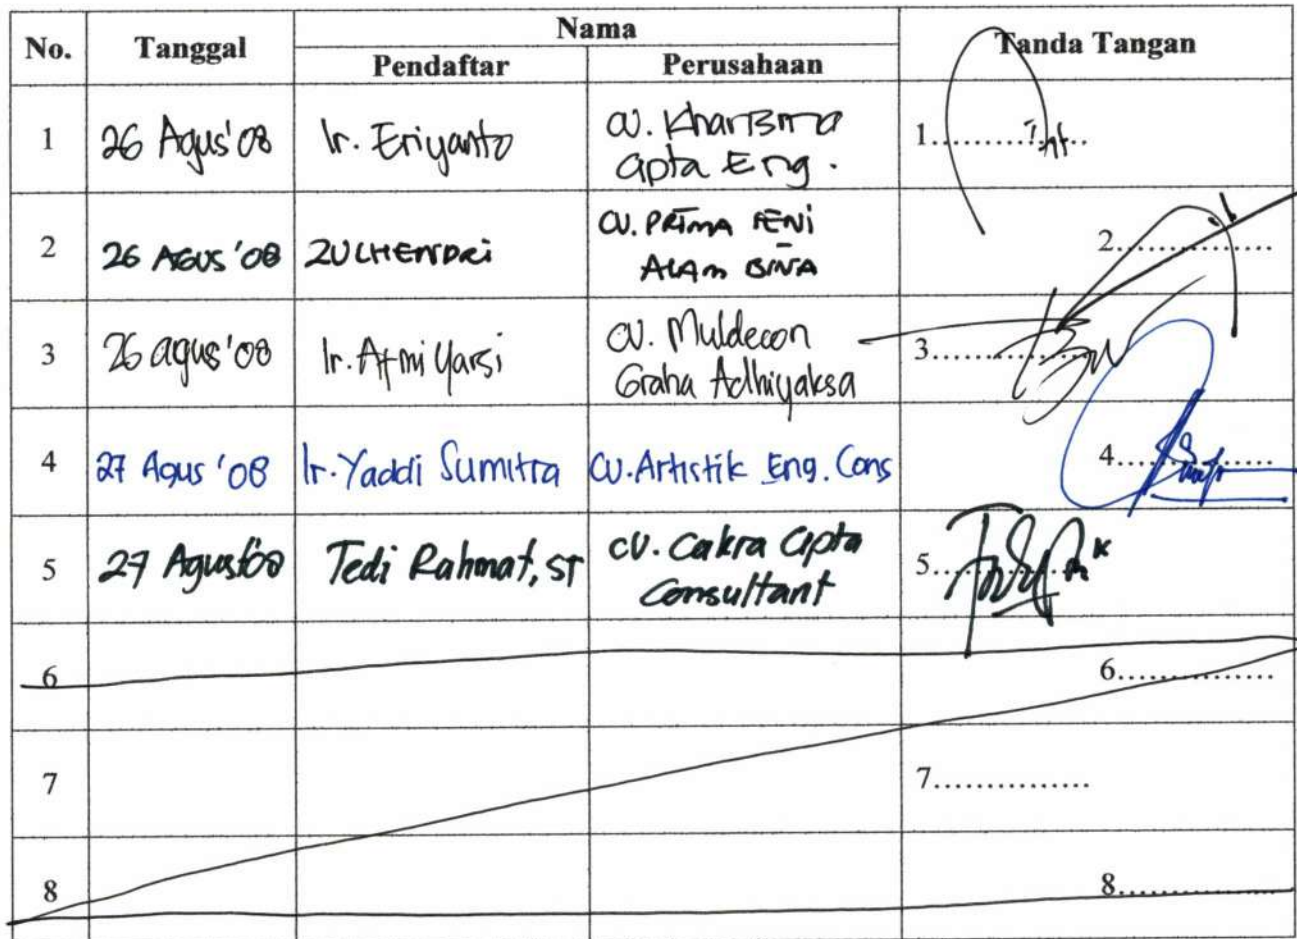 No. Tanggal Nama Tanda Tangan
Pendaftar Perusahaan
1 26 Agus'08 Ir. Eriyanto CV. Kharisma 1...............
Cipta Eng.
2 26 AGUS '08 ZULHENDRi CV. PRIMA RENI 2...............
ALAM BINA
3 26 agus'08 Ir. Afmi Yarsi CV. Muldecon 3...............
Graha Adhiyaksa
4 27 Agus '08 Ir. Yaddi Sumitra CV. Artistik Eng. Cons 4...............
5 27 Agust'08 Tedi Rahmat, ST CV. Cakra Cipta 5...............
Consultant
6 6...............
7 7...............
8 8...............